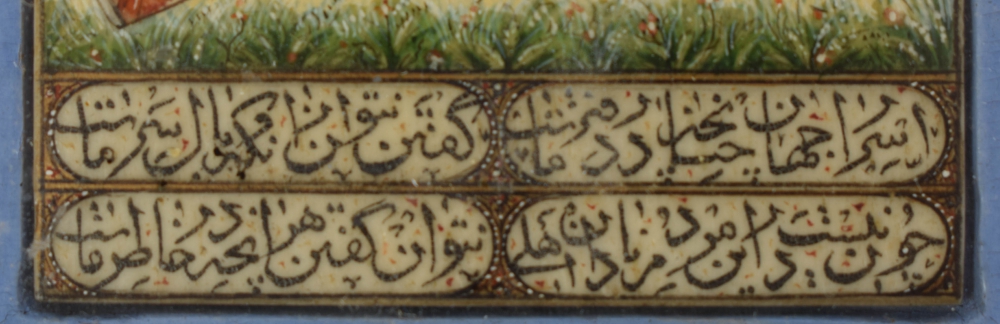 اسرار جهان چنانچه در دفتر ماست
گفتن نتوان که آن وبال سر ماست
چون نیست در این مردم نادان اهلی
نتوان گفتن هر آنچه در خاطر ماست